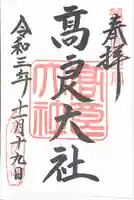 奉拝
高良大社
令和三年十二月十九日